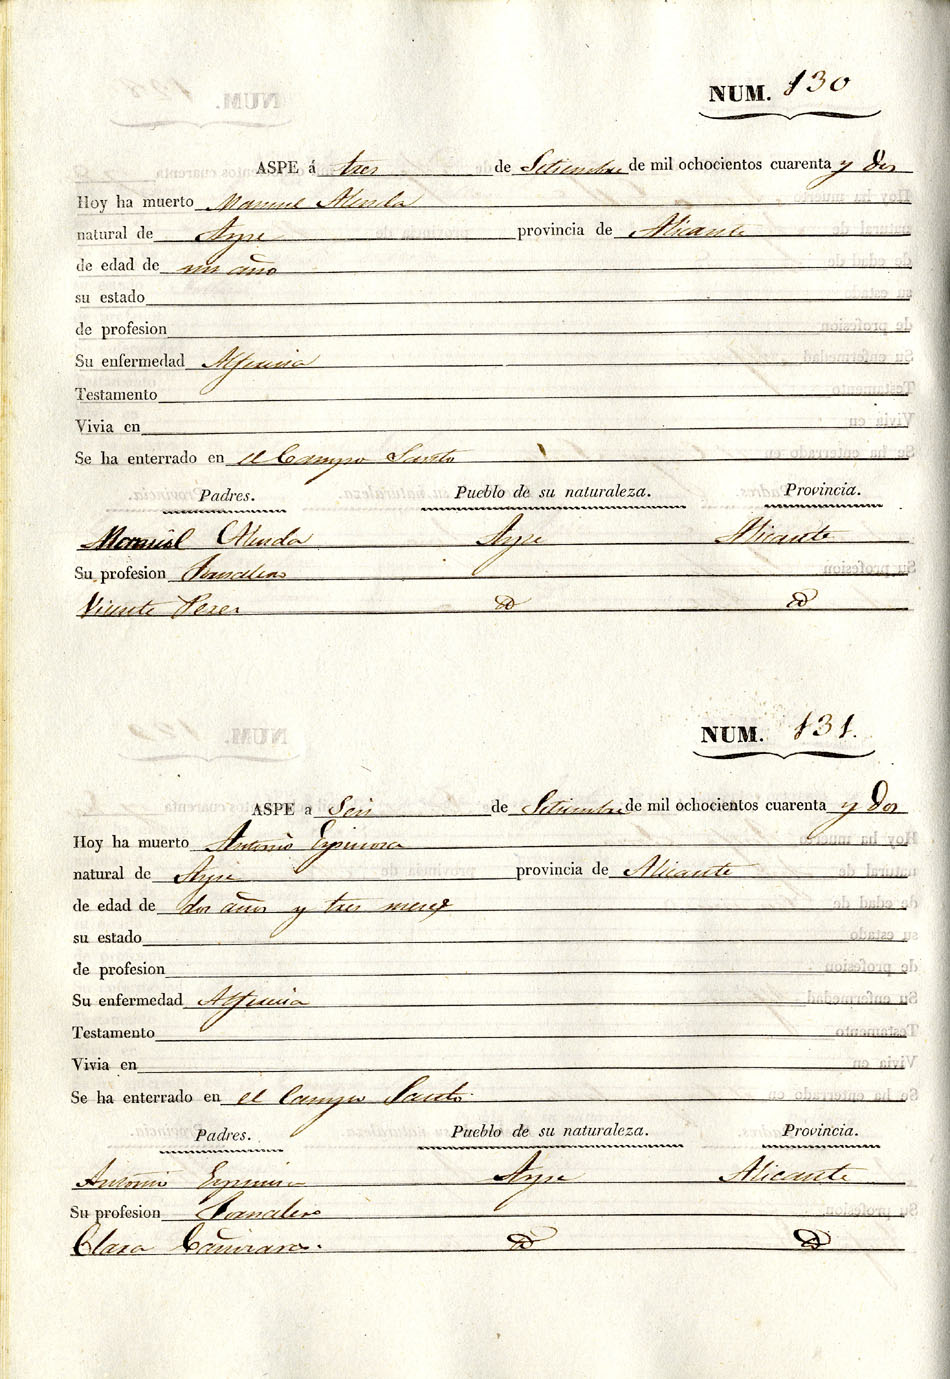 NUM. 130
ASPE á tres de Setiembre de mil ochocientos cuarenta y dos
Hoy ha muerto Manuel Alenda
natural de Aspe provincia de Alicante
de edad de un año
su estado
de profesion
Su enfermedad Alferecia
Testamento
Vivia en
Se ha enterrado en el Campo Santo
Padres. Pueblo de su naturaleza. Provincia.
Manuel Alenda Aspe Alicante
Su profesion Jornalero
Vicente Perez id id
NUM. 131.
ASPE a Seis de Setiembre de mil ochocientos cuarenta y Dos
Hoy ha muerto Antonio Espinosa
natural de Aspe provincia de Alicante
de edad de dos años y tres meses
su estado
de profesion
Su enfermedad Alferecia
Testamento
Vivia en
Se ha enterrado en el Campo Santo.
Padres. Pueblo de su naturaleza. Provincia.
Antonio Espinosa Aspe Alicante
Su profesion Jornalero
Clara Cañizares. id id